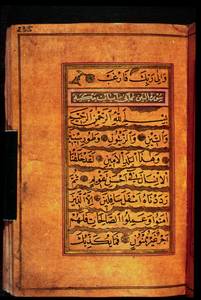 وَاِلٰى رَبِّكَ فَارْغَبْ
سورة التين ثمانى ايات مكية
بِسْمِ اللّٰهِ الرَّحْمٰنِ الرَّحِيمِ
وَالتِّينِ وَالزَّيْتُونِ وَطُورِ سِينِينَ
وَهٰذَا الْبَلَدِ الْاَمِينِ لَقَدْ خَلَقْنَا
الْاِنْسَانَ فِى اَحْسَنِ تَقْوِيمٍ ثُمَّ
رَدَدْنَاهُ اَسْفَلَ سَافِلِينَ اِلَّا الَّذِينَ
اٰمَنُوا وَعَمِلُوا الصَّالِحَاتِ فَلَهُمْ
اَجْرٌ غَيْرُ مَمْنُونٍ فَمَا يُكَذِّبُكَ